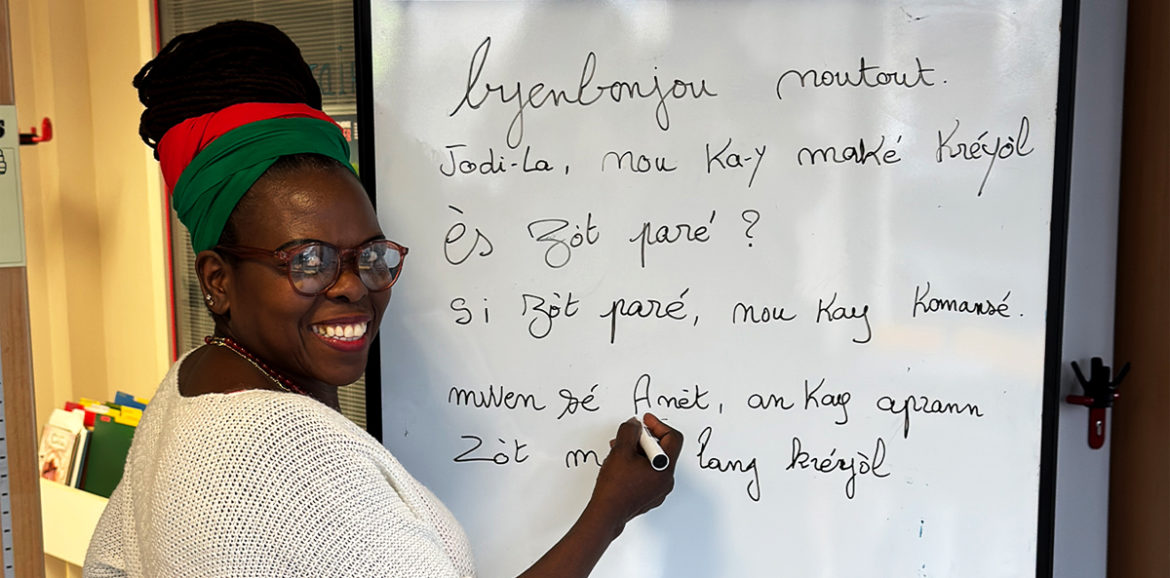 byenbonjou noutout.
Jodi-La, nou Ka-y maké Kréyòl
ès zòt paré ?
Si zòt paré, nou Kay Komansé.
mwen sé Anèt, an Kay aprann
zòt lang kréyòl